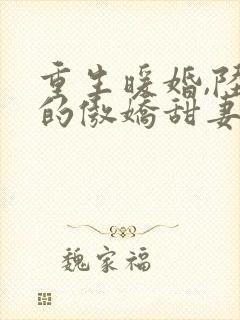 重生暖婚,陆
的傲娇甜妻
魏家福